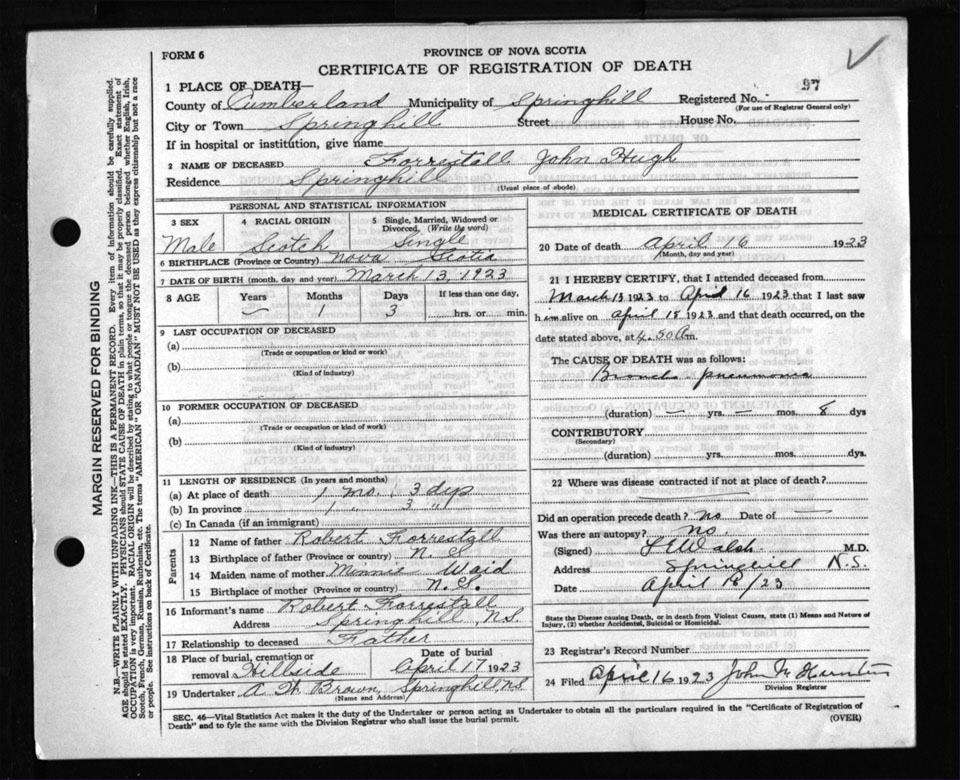 FORM 6
PROVINCE OF NOVA SCOTIA
CERTIFICATE OF REGISTRATION OF DEATH
97
1 PLACE OF DEATH—
County of Cumberland Municipality of Springhill Registered No.
(For use of Registrar General only)
City or Town Springhill Street House No.
If in hospital or institution, give name
2 NAME OF DECEASED Forrestall John Hugh
Residence Springhill
(Usual place of abode)
PERSONAL AND STATISTICAL INFORMATION
3 SEX 4 RACIAL ORIGIN 5 Single, Married, Widowed or Divorced, (Write the word)
Male Scotch Single
6 BIRTHPLACE (Province or Country) Nova Scotia
7 DATE OF BIRTH (month, day and year) March 13, 1923
8 AGE Years Months Days If less than one day,
— 1 3 hrs. or min.
9 LAST OCCUPATION OF DECEASED
(a)
(Trade or occupation or kind or work)
(b)
(Kind of industry)
10 FORMER OCCUPATION OF DECEASED
(a)
(Trade or occupation or kind or work)
(b)
(Kind of industry)
11 LENGTH OF RESIDENCE (In years and months)
(a) At place of death 1 mo. 3 dys
(b) In province 1 " 3 "
(c) In Canada (if an immigrant)
Parents
12 Name of father Robert Forrestall
13 Birthplace of father (Province or country) N. S.
14 Maiden name of mother Minnie Waid
15 Birthplace of mother (Province or country) N. S.
16 Informant's name Robert Forrestall
Address Springhill, N.S.
17 Relationship to deceased Father
18 Place of burial, cremation or removal Hillside Date of burial April 17 1923
19 Undertaker A. W. Brown, Springhill N.S.
(Name and Address)
MEDICAL CERTIFICATE OF DEATH
20 Date of death April 16 1923
(Month, day and year)
21 I HEREBY CERTIFY, that I attended deceased from
March 13 1923 to April 16 1923 that I last saw
him alive on April 15 1923 and that death occurred, on the
date stated above, at 4.50 a m.
The CAUSE OF DEATH was as follows:
Broncho pneumonia
(duration) — yrs. — mos. 8 dys
CONTRIBUTORY
(Secondary)
(duration) yrs. mos. dys.
22 Where was disease contracted if not at place of death?
Did an operation precede death? No Date of —
Was there an autopsy? No.
(Signed) Walsh M.D.
Address Springhill N.S.
Date April /23
State the Disease causing Death, or in death from Violent Causes, state (1) Means and Nature of
Injury, (2) whether Accidental, Suicidal or Homicidal.
23 Registrar's Record Number
24 Filed April 16 1923 John
Division Registrar
SEC. 46—Vital Statistics Act makes it the duty of the Undertaker or person acting as Undertaker to obtain all the particulars required in the "Certificate of Registration of
Death" and to fyle the same with the Division Registrar who shall issue the burial permit.
(OVER)
MARGIN RESERVED FOR BINDING
N.B.—WRITE PLAINLY WITH UNFADING INK—THIS IS A PERMANENT RECORD. Every item of information should be carefully supplied.
AGE should be stated EXACTLY. PHYSICIANS should STATE CAUSE OF DEATH in plain terms, so that it may be properly classified. Exact statement of
OCCUPATION is very important. RACIAL ORIGIN will be described by stating to what people or tongue the deceased person belonged whether English, Irish,
Scotch, French, German, Russian, Ruthenian, etc. The terms "AMERICAN" OR "CANADIAN" MUST NOT BE USED as they express citizenship but not a race
or people. See instructions on back of Certificate.